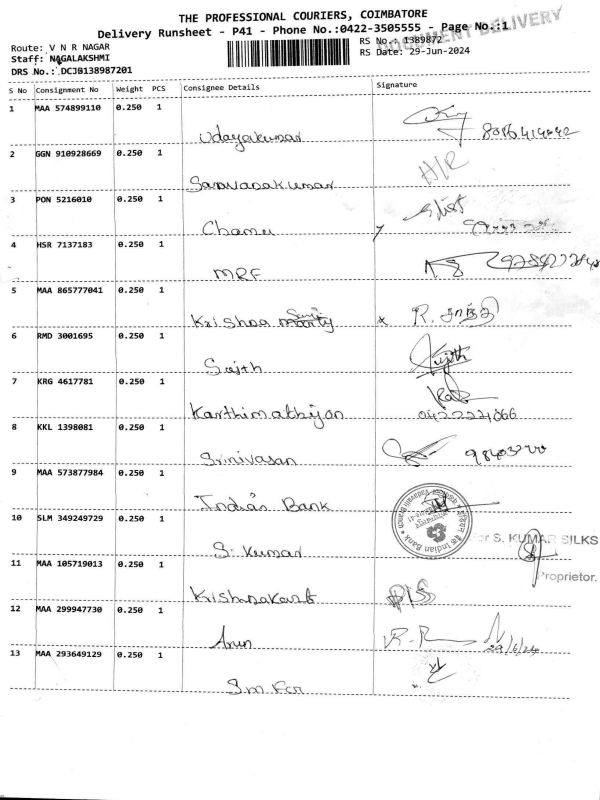 THE PROFESSIONAL COURIERS, COIMBATORE
Delivery Runsheet - P41 - Phone No.:0422-3505555 - Page No.:1
DOCUMENT DELIVERY
Route: V N R NAGAR
RS No.: 1389872
Staff: NAGALAKSHMI
RS Date: 29-Jun-2024
DRS No.: DCJB138987201
S No Consignment No Weight PCS Consignee Details Signature
1 MAA 574899110 0.250 1
Udayakumar
2 GGN 910928669 0.250 1
H/R
Saravanakumar
3 PON 5216010 0.250 1
4 HSR 7137183 0.250 1
MRF
5 MAA 865777041 0.250 1
Krishna R. சாந்தி
6 RMD 3001695 0.250 1
Sajth
7 KRG 4617781 0.250 1
0422221066
8 KKL 1398081 0.250 1
Srinivasan
9 MAA 573877984 0.250 1
Indian Bank
Indian Bank
10 SLM 349249729 0.250 1
For S. KUMAR SILKS
S. Kumar
Proprietor.
11 MAA 105719013 0.250 1
12 MAA 299947730 0.250 1
Arun 29/6/24
13 MAA 293649129 0.250 1